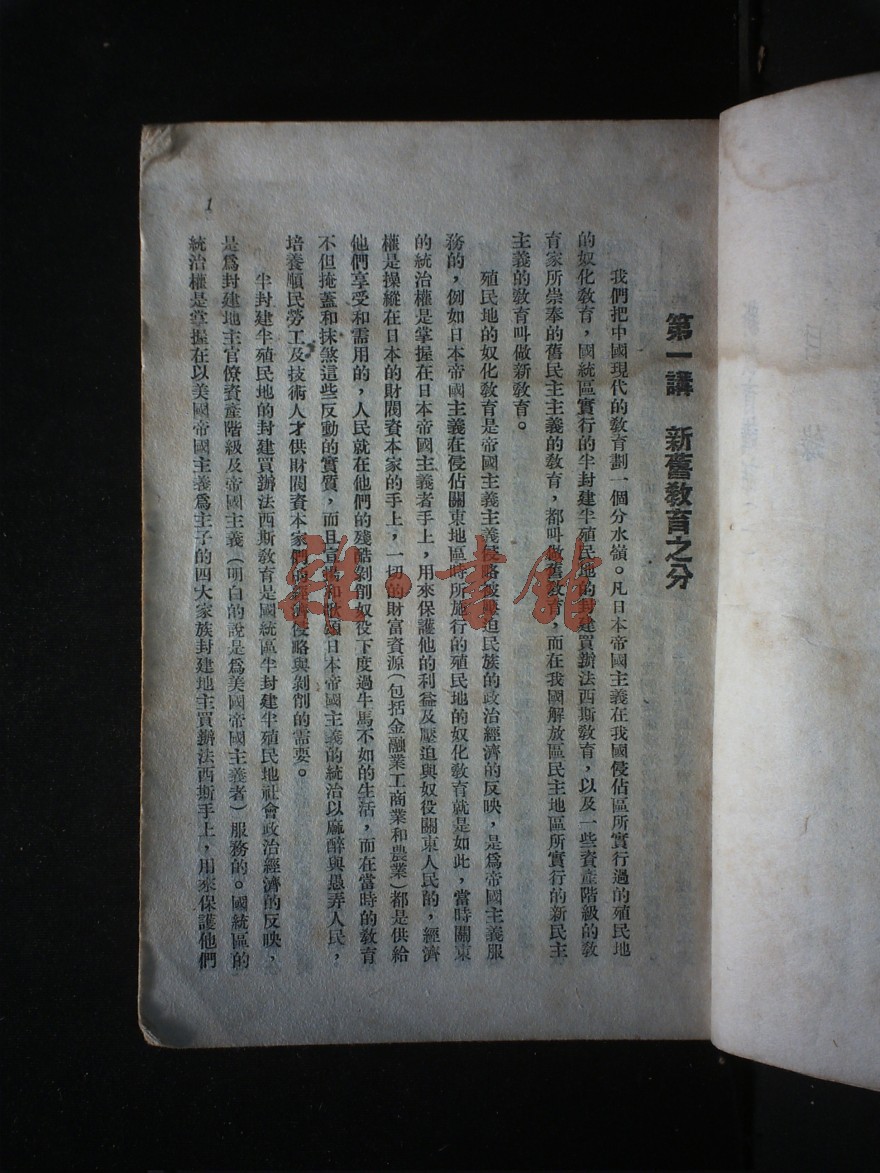 第一講　新舊教育之分
我們把中國現代的教育劃一個分水嶺。凡日本帝國主義在我國侵佔區所實行過的殖民地
的奴化教育，國統區實行的半封建半殖民地的封建買辦法西斯教育，以及一些資產階級的教
育家所崇奉的舊民主主義的教育，都叫做舊教育，而在我國解放區民主地區所實行的新民主
主義的教育叫做新教育。
殖民地的奴化教育是帝國主義侵略被壓迫民族的政治經濟的反映，是爲帝國主義服
務的，例如日本帝國主義在侵佔關東地區時所施行的殖民地的奴化教育就是如此，當時關東
的統治權是掌握在日本帝國主義者手上，用來保護他的利益及壓迫與奴役關東人民的，經濟
權是操縱在日本的財閥資本家的手上，一切的財富資源（包括金融業工商業和農業）都是供給
他們享受和需用的，人民就在他們的殘酷剝削奴役下度過牛馬不如的生活，而在當時的教育
不但掩蓋和抹煞這些反動的實質，而且宣揚和歌頌日本帝國主義的統治以麻醉與愚弄人民，
培養順民勞工及技術人才供財閥資本家們的經濟侵略與剝削的需要。
半封建半殖民地的封建買辦法西斯教育是國統區半封建半殖民地社會政治經濟的反映，
是爲封建地主官僚資產階級及帝國主義（明白的說是爲美國帝國主義者）服務的。國統區的
統治權是掌握在以美國帝國主義爲主子的四大家族封建地主買辦法西斯手上，用來保護他們
1
雜·書館
目錄